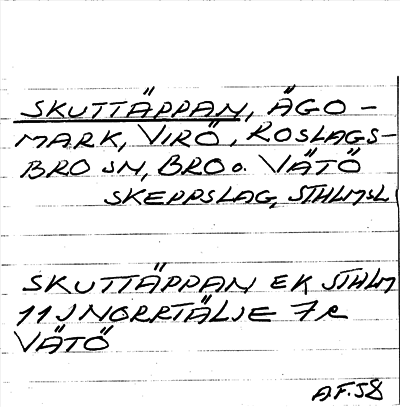 SKUTTÄPPAN, ÄGO-
MARK, VIRÖ, ROSLAGS-
BRO SN, BRO o. VÄTÖ
SKEPPSLAG, STHLMSL
SKUTTÄPPAN EK STHLM
11J NORRTÄLJE 7c
VÄTÖ
AF.58